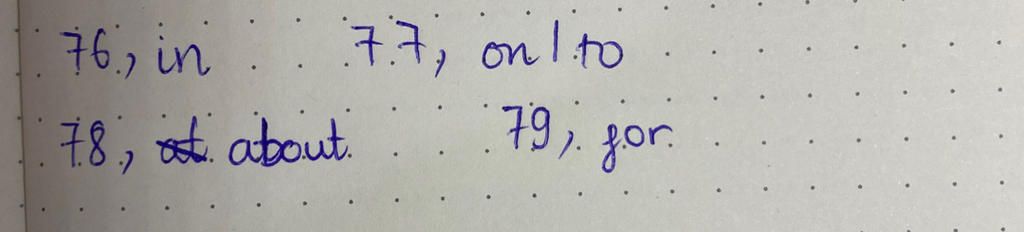 76, in 77, on/to
78, at about 79, for